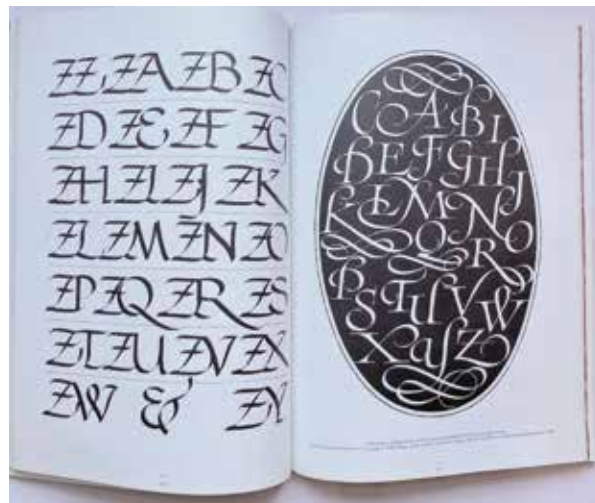 ZZ ZA ZB ZC
ZD ZE ZF ZG
ZH ZI ZJ ZK
ZL ZM ZN ZO
ZP ZQ ZR ZS
ZT ZU ZV ZX
ZW & ZY
C A B I
D E F G H J
K L M N O
Q R
P S T U V W
X Y Z